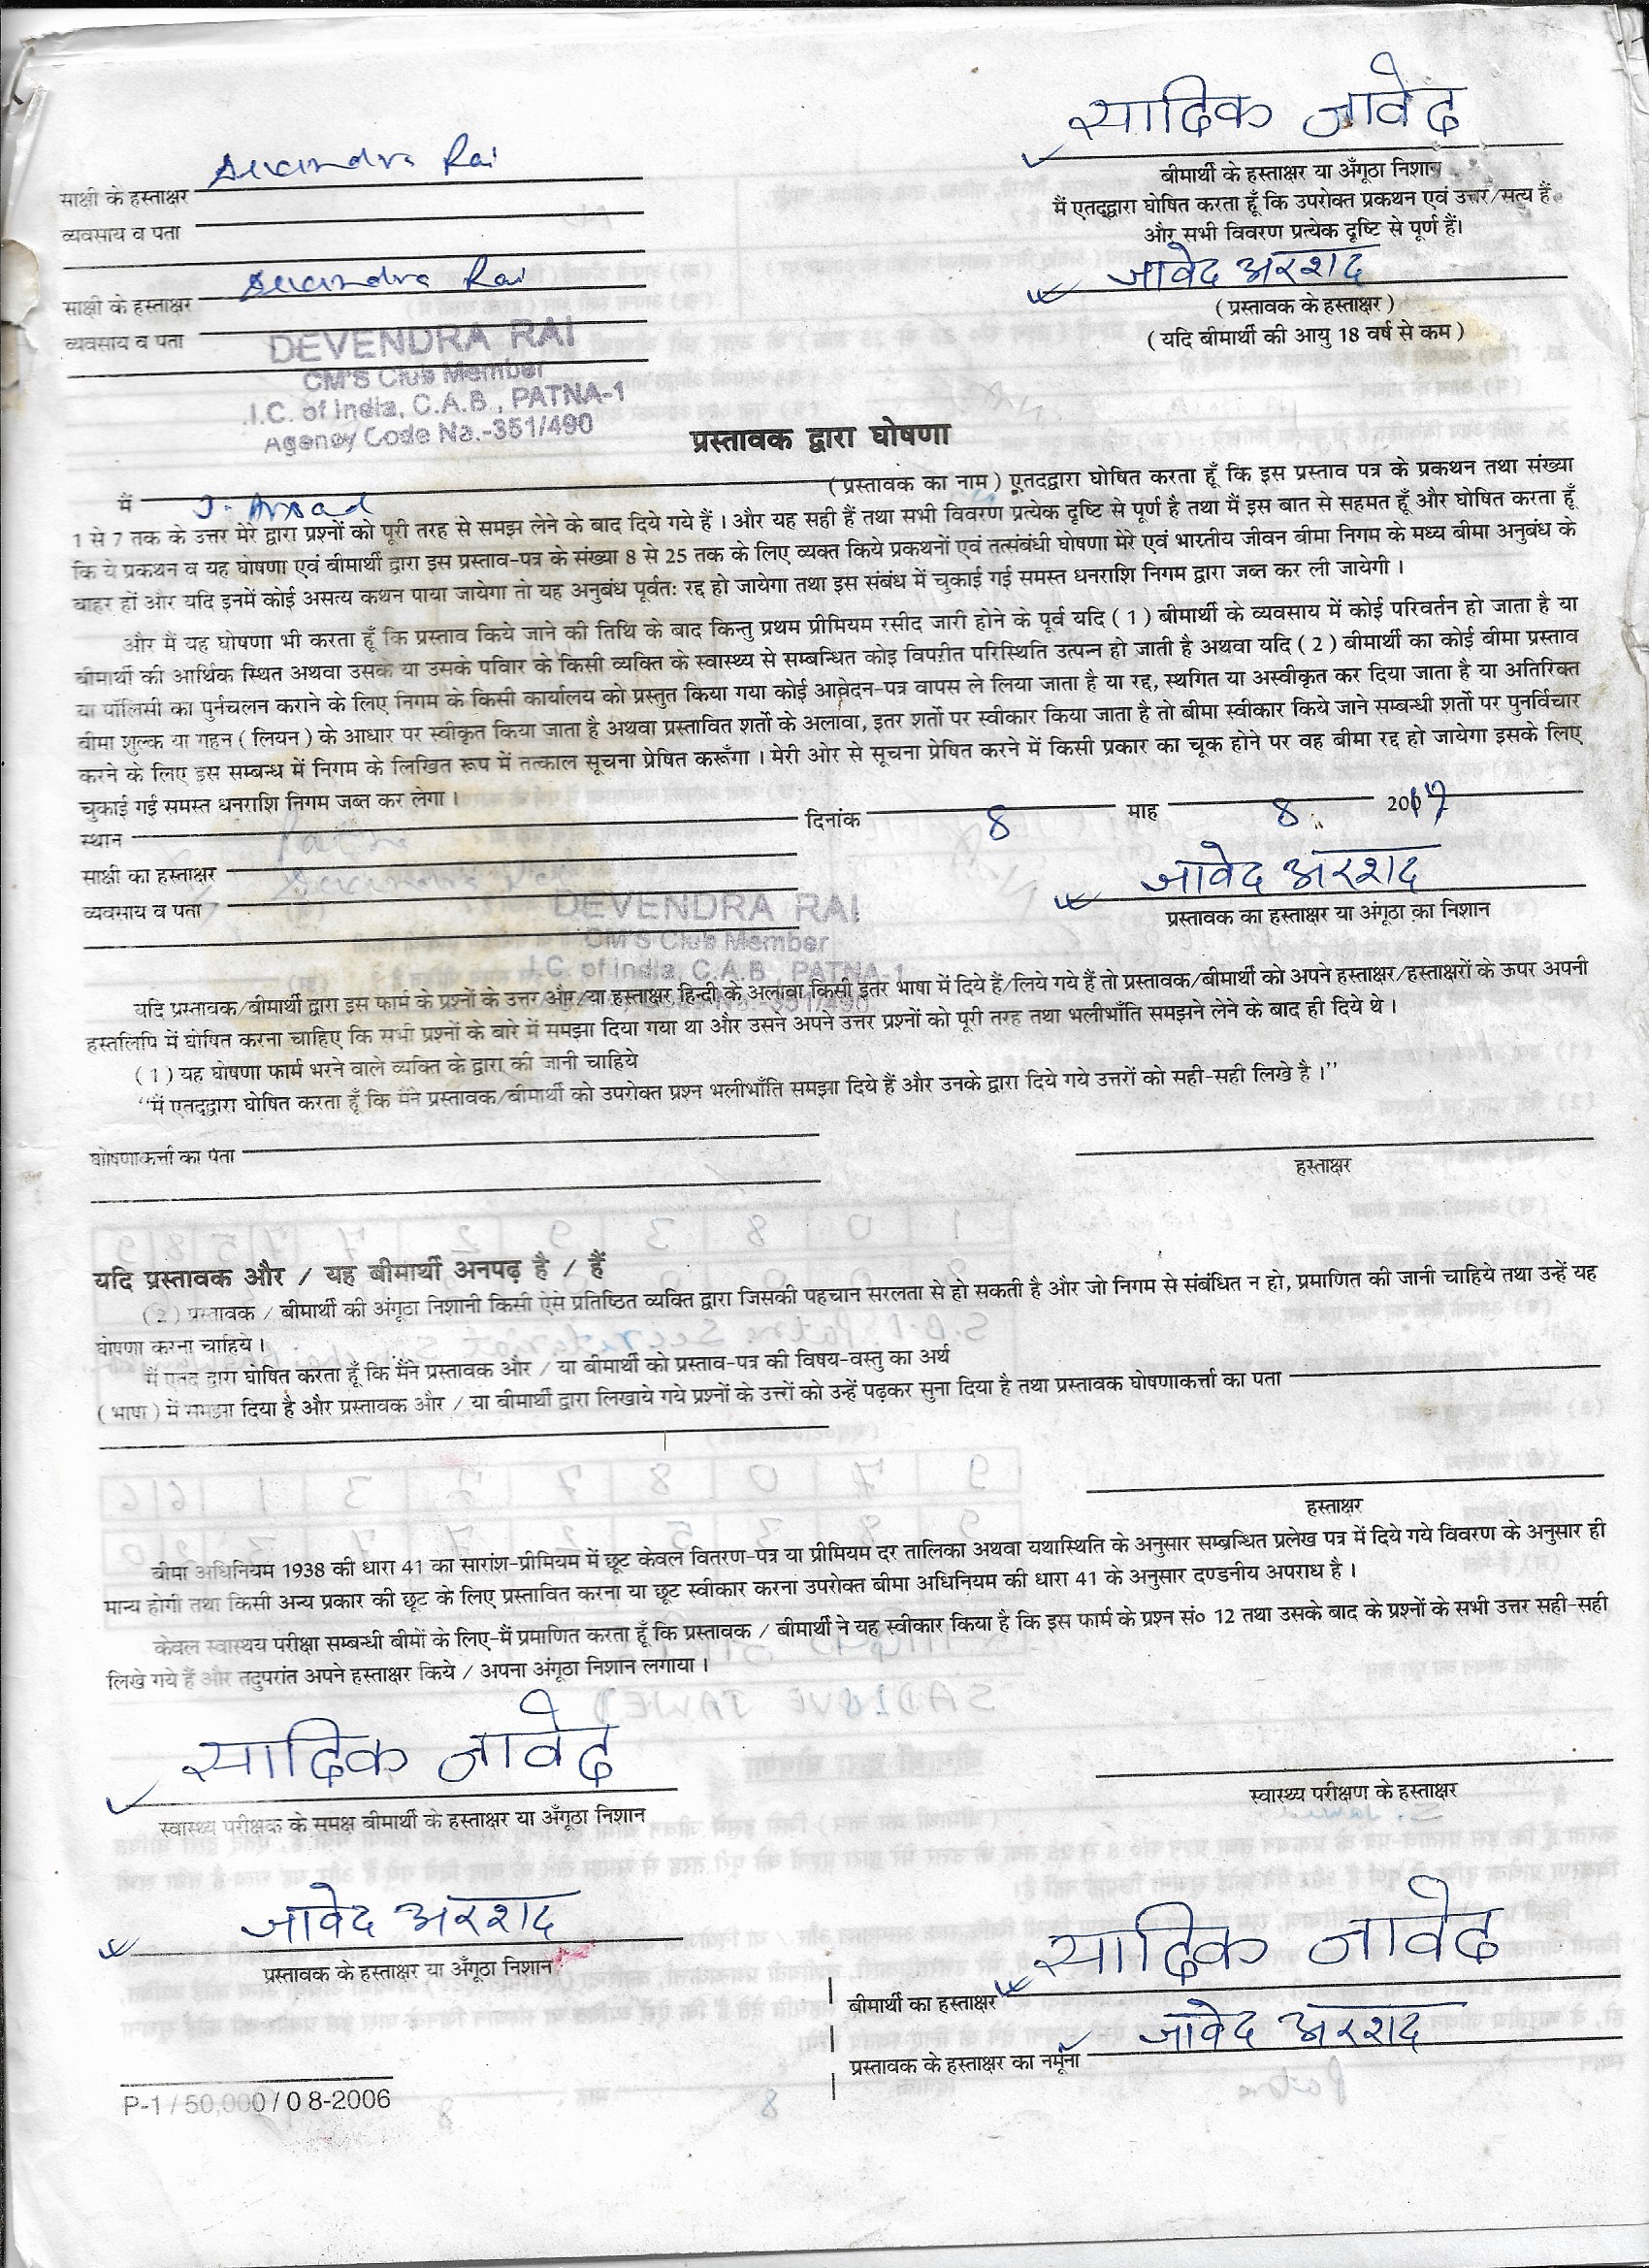 सादिक जावेद
Devendra Rai
साक्षी के हस्ताक्षर
बीमार्थी के हस्ताक्षर या अँगूठा निशान
व्यवसाय व पता
मैं एतद्द्वारा घोषित करता हूँ कि उपरोक्त प्रकथन एवं उत्तर/सत्य हैं
और सभी विवरण प्रत्येक दृष्टि से पूर्ण हैं।
Devendra Rai
जावेद अरशद
साक्षी के हस्ताक्षर
( प्रस्तावक के हस्ताक्षर )
व्यवसाय व पता
( यदि बीमार्थी की आयु 18 वर्ष से कम )
DEVENDRA RAI
CM'S Club Member
.I.C. of India, C.A.B., PATNA-1
Agency Code No.-351/490
प्रस्तावक द्वारा घोषणा
मैं J. Arsad ( प्रस्तावक का नाम ) एतदद्वारा घोषित करता हूँ कि इस प्रस्ताव पत्र के प्रकथन तथा संख्या
1 से 7 तक के उत्तर मेरे द्वारा प्रश्नों को पूरी तरह से समझ लेने के बाद दिये गये हैं । और यह सही हैं तथा सभी विवरण प्रत्येक दृष्टि से पूर्ण है तथा मैं इस बात से सहमत हूँ और घोषित करता हूँ
कि ये प्रकथन व यह घोषणा एवं बीमार्थी द्वारा इस प्रस्ताव-पत्र के संख्या 8 से 25 तक के लिए व्यक्त किये प्रकथनों एवं तत्संबंधी घोषणा मेरे एवं भारतीय जीवन बीमा निगम के मध्य बीमा अनुबंध के
बाहर हों और यदि इनमें कोई असत्य कथन पाया जायेगा तो यह अनुबंध पूर्वतः रद्द हो जायेगा तथा इस संबंध में चुकाई गई समस्त धनराशि निगम द्वारा जब्त कर ली जायेगी ।
और मैं यह घोषणा भी करता हूँ कि प्रस्ताव किये जाने की तिथि के बाद किन्तु प्रथम प्रीमियम रसीद जारी होने के पूर्व यदि ( 1 ) बीमार्थी के व्यवसाय में कोई परिवर्तन हो जाता है या
बीमार्थी की आर्थिक स्थित अथवा उसके या उसके पविार के किसी व्यक्ति के स्वास्थ्य से सम्बन्धित कोइ विपरीत परिस्थिति उत्पन्न हो जाती है अथवा यदि ( 2 ) बीमार्थी का कोई बीमा प्रस्ताव
या पॉलिसी का पुर्नचलन कराने के लिए निगम के किसी कार्यालय को प्रस्तुत किया गया कोई आवेदन-पत्र वापस ले लिया जाता है या रद्द, स्थगित या अस्वीकृत कर दिया जाता है या अतिरिक्त
बीमा शुल्क या गहन ( लियन ) के आधार पर स्वीकृत किया जाता है अथवा प्रस्तावित शर्तो के अलावा, इतर शर्तो पर स्वीकार किया जाता है तो बीमा स्वीकार किये जाने सम्बन्धी शर्तो पर पुनर्विचार
करने के लिए इस सम्बन्ध में निगम के लिखित रूप में तत्काल सूचना प्रेषित करूँगा । मेरी ओर से सूचना प्रेषित करने में किसी प्रकार का चूक होने पर वह बीमा रद्द हो जायेगा इसके लिए
चुकाई गई समस्त धनराशि निगम जब्त कर लेगा ।
स्थान दिनांक 8 माह 8 2017
साक्षी का हस्ताक्षर
जावेद अरशद
व्यवसाय व पता
प्रस्तावक का हस्ताक्षर या अंगूठा का निशान
DEVENDRA RAI
CM'S Club Member
.I.C. of India, C.A.B., PATNA-1
-351/490
यदि प्रस्तावक/बीमार्थी द्वारा इस फार्म के प्रश्नों के उत्तर और/या हस्ताक्षर हिन्दी के अलावा किसी इतर भाषा में दिये हैं/लिये गये हैं तो प्रस्तावक/बीमार्थी को अपने हस्ताक्षर/हस्ताक्षरों के ऊपर अपनी
हस्तलिपि में घोषित करना चाहिए कि सभी प्रश्नों के बारे में समझा दिया गया था और उसने अपने उत्तर प्रश्नों को पूरी तरह तथा भलीभाँति समझने लेने के बाद ही दिये थे ।
( 1 ) यह घोषणा फार्म भरने वाले व्यक्ति के द्वारा की जानी चाहिये
“मैं एतदद्वारा घोषित करता हूँ कि मैंने प्रस्तावक/बीमार्थी को उपरोक्त प्रश्न भलीभाँति समझा दिये हैं और उनके द्वारा दिये गये उत्तरों को सही-सही लिखे है ।”
घोषणाकर्त्ता का पता
हस्ताक्षर
यदि प्रस्तावक और / यह बीमार्थी अनपढ़ है / हैं
(2) प्रस्तावक / बीमार्थी की अंगूठा निशानी किसी ऐसे प्रतिष्ठित व्यक्ति द्वारा जिसकी पहचान सरलता से हो सकती है और जो निगम से संबंधित न हो, प्रमाणित की जानी चाहिये तथा उन्हें यह
घोषणा करना चाहिये ।
मैं एतद द्वारा घोषित करता हूँ कि मैंने प्रस्तावक और / या बीमार्थी को प्रस्ताव-पत्र की विषय-वस्तु का अर्थ
( भाषा ) में समझा दिया है और प्रस्तावक और / या बीमार्थी द्वारा लिखाये गये प्रश्नों के उत्तरों को उन्हें पढ़कर सुना दिया है तथा प्रस्तावक घोषणाकर्त्ता का पता
हस्ताक्षर
बीमा अधिनियम 1938 की धारा 41 का सारांश-प्रीमियम में छूट केवल वितरण-पत्र या प्रीमियम दर तालिका अथवा यथास्थिति के अनुसार सम्बन्धित प्रलेख पत्र में दिये गये विवरण के अनुसार ही
मान्य होगी तथा किसी अन्य प्रकार की छूट के लिए प्रस्तावित करना या छूट स्वीकार करना उपरोक्त बीमा अधिनियम की धारा 41 के अनुसार दण्डनीय अपराध है ।
केवल स्वास्थय परीक्षा सम्बन्धी बीमों के लिए-मैं प्रमाणित करता हूँ कि प्रस्तावक / बीमार्थी ने यह स्वीकार किया है कि इस फार्म के प्रश्न सं० 12 तथा उसके बाद के प्रश्नों के सभी उत्तर सही-सही
लिखे गये हैं और तदुपरांत अपने हस्ताक्षर किये / अपना अंगूठा निशान लगाया ।
सादिक जावेद
स्वास्थ्य परीक्षक के समक्ष बीमार्थी के हस्ताक्षर या अँगूठा निशान
स्वास्थ्य परीक्षण के हस्ताक्षर
जावेद अरशद
प्रस्तावक के हस्ताक्षर या अँगूठा निशान
सादिक जावेद
बीमार्थी का हस्ताक्षर
जावेद अरशद
प्रस्तावक के हस्ताक्षर का नमूना
P-1 / 50,000 / 0 8-2006